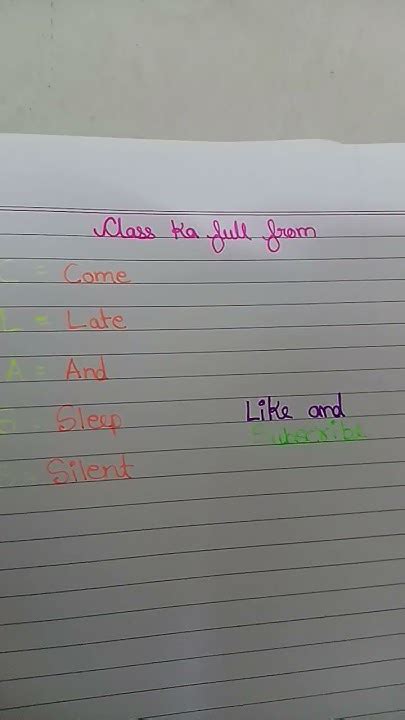 Class ka full from
C = Come
L = Late
A = And
S Sleep
Silent
Like and